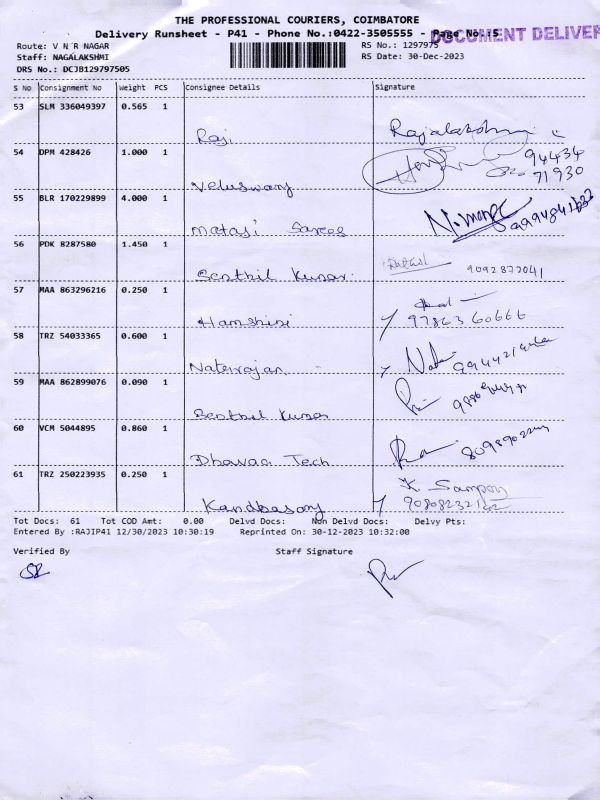 THE PROFESSIONAL COURIERS, COIMBATORE
Delivery Runsheet - P41 - Phone No.:0422-3505555 - Page No.:5
DOCUMENT DELIVER
Route: V N R NAGAR
RS No.: 1297975
Staff: NAGALAKSHMI
RS Date: 30-Dec-2023
DRS No.: DCJB129797505
S No Consignment No Weight PCS Consignee Details Signature
53 SLM 336049397 0.565 1
Raji Rajalakshmi
54 DPM 428426 1.000 1
94434
71930
Veluswamy
55 BLR 170229899 4.000 1
Mataji Sarees
56 PDK 8287580 1.450 1
Senthil Kumar 9092877041
57 MAA 863296216 0.250 1
Hamshini 97863 60666
58 TRZ 54033365 0.600 1
Natarajan
59 MAA 862899076 0.090 1
Senthil Kumar
60 VCM 5044895 0.860 1
Dhavaa Tech
61 TRZ 250223935 0.250 1
K. Sampory
Kandhasamy
Tot Docs: 61 Tot COD Amt: 0.00 Delvd Docs: Non Delvd Docs: Delvy Pts:
Entered By :RAJIP41 12/30/2023 10:30:19 Reprinted On: 30-12-2023 10:32:00
Verified By Staff Signature